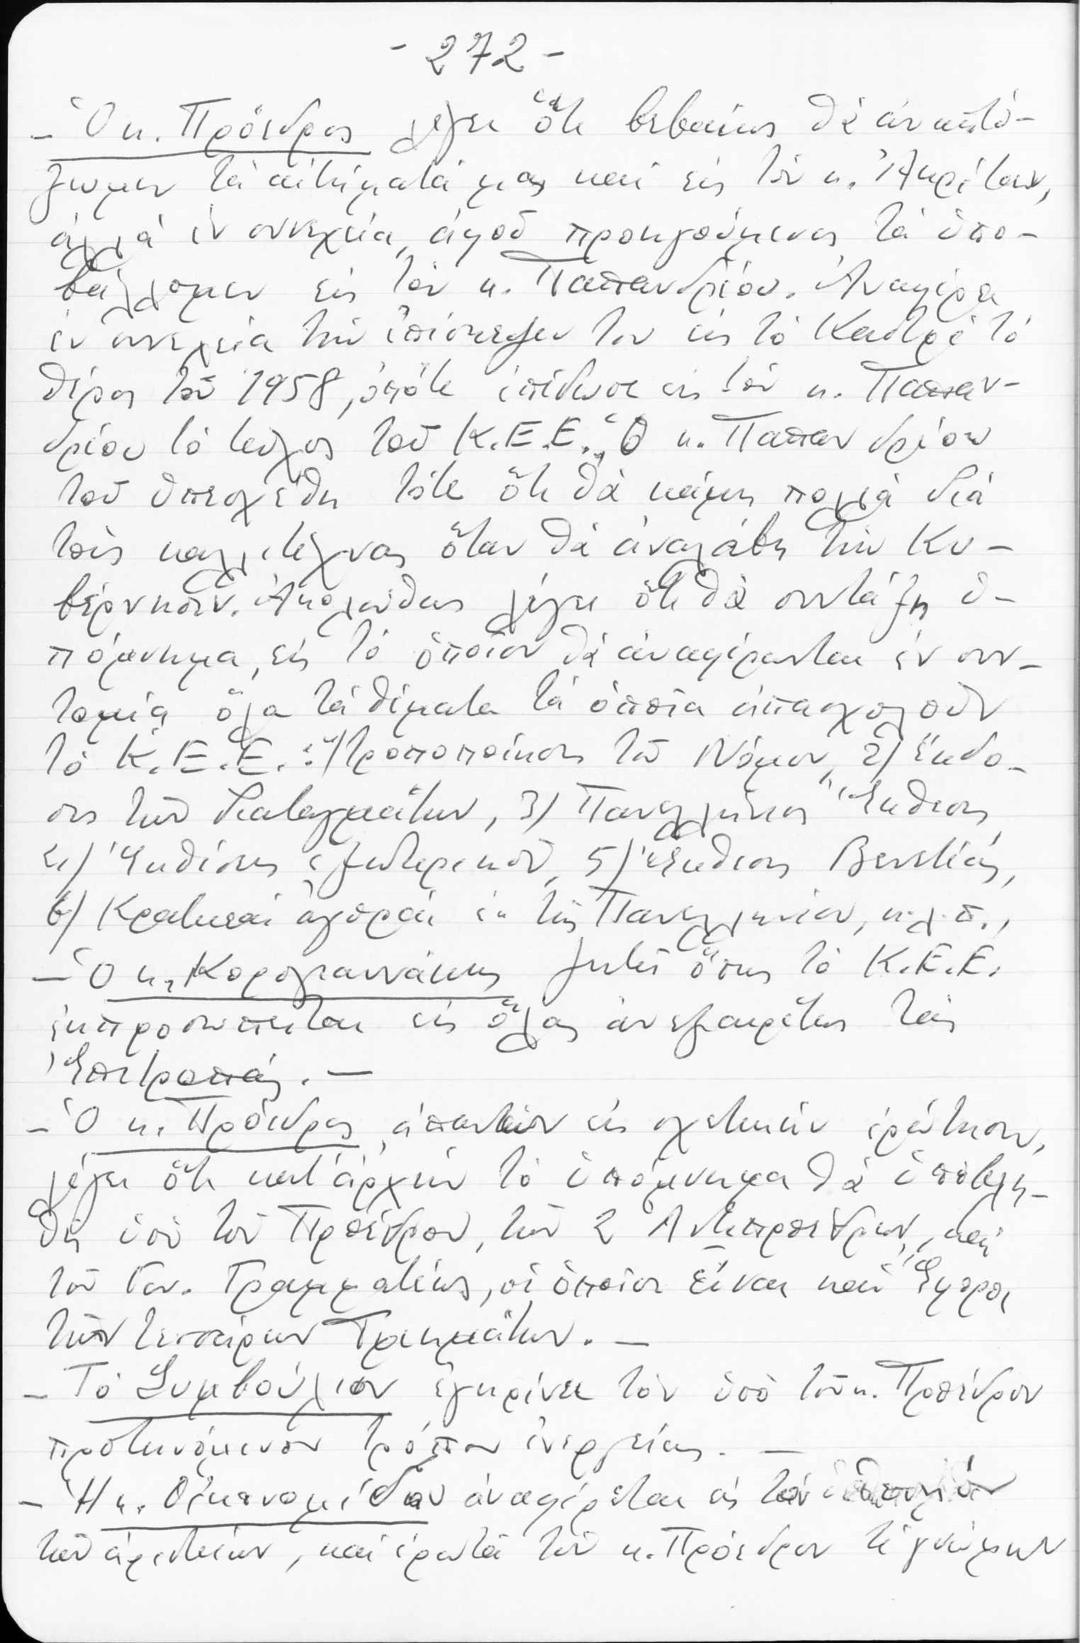 - 272 -
- Ὁ κ. Πρόεδρος λέγει ὅτι βεβαίως θά ἀναπτύ-
ξωμεν τά αἰτήματά μας καί εἰς τόν κ. Ἀκρίταν,
ἀλλά ἐν συνεχεία, ἀφοῦ προηγούμενος τά ὑπο-
βάλλομεν εἰς τόν κ. Παπανδρέου. Ἀναφέρει
ἐν συνεχεία τήν ἐπίσκεψιν του εἰς τό Καστρί τό
θέρος τοῦ 1958, ὁπότε ἐπέδωσε εἰς τόν κ. Παπαν-
δρέου τό τεῦχος τοῦ Κ.Ε.Ε., Ὁ κ. Παπανδρέου
τοῦ ὑπεσχέθη τότε ὅτι θά κάμῃ πολλά διά
τούς καλλιτέχνας ὅταν θά ἀναλάβῃ τήν Κυ-
βέρνησιν. Ἀκολούθως λέγει ὅτι θά συντάξῃ ὑ-
πόμνημα, εἰς τό ὁποῖον θά ἀναφέρωνται ἐν συν-
τομίᾳ ὅλα τά θέματα τά ὁποῖα ἀπασχολοῦν
τό Κ.Ε.Ε.: 1/ τροποποίησις τοῦ Νόμου, 2/ ἔκδο-
σις τῶν διαταγμάτων, 3/ Πανελλήνιος Ἔκθεσις,
4/ Ἐκθέσεις ἐξωτερικοῦ, 5/ Ἔκθεσις Βενετίας,
6/ Κρατικαί ἀγοραί ἐκ τῆς Πανελληνίου, κ.λ.π.,
- Ὁ κ. Κορογιαννάκης ζητεῖ ὅπως τό Κ.Ε.Ε.
ἐκπροσωπῆται εἰς ὅλας ἀνεξαιρέτως τάς
Ἐπιτροπάς. -
- Ὁ κ. Πρόεδρος, ἀπαντῶν εἰς σχετικήν ἐρώτησιν,
λέγει ὅτι κατ' ἀρχήν τό ὑπόμνημα θά ὑποβλη-
θῇ ὑπό τοῦ Προέδρου, τῶν 2 Ἀντιπροέδρων, καί
τοῦ Γεν. Γραμματέως, οἱ ὁποῖοι εἶναι καί Ἔφοροι
τῶν τεσσάρων Τμημάτων. -
- Τό Συμβούλιον ἐγκρίνει τόν ὑπό τοῦ κ. Προέδρου
προτεινόμενον τρόπον ἐνεργείας. -
- Ἡ κ. Οἰκονομίδου ἀναφέρεται εἰς τήν
τῶν ἀριστείων, καί ἐρωτᾶ τόν κ. Πρόεδρον τί γνώμην